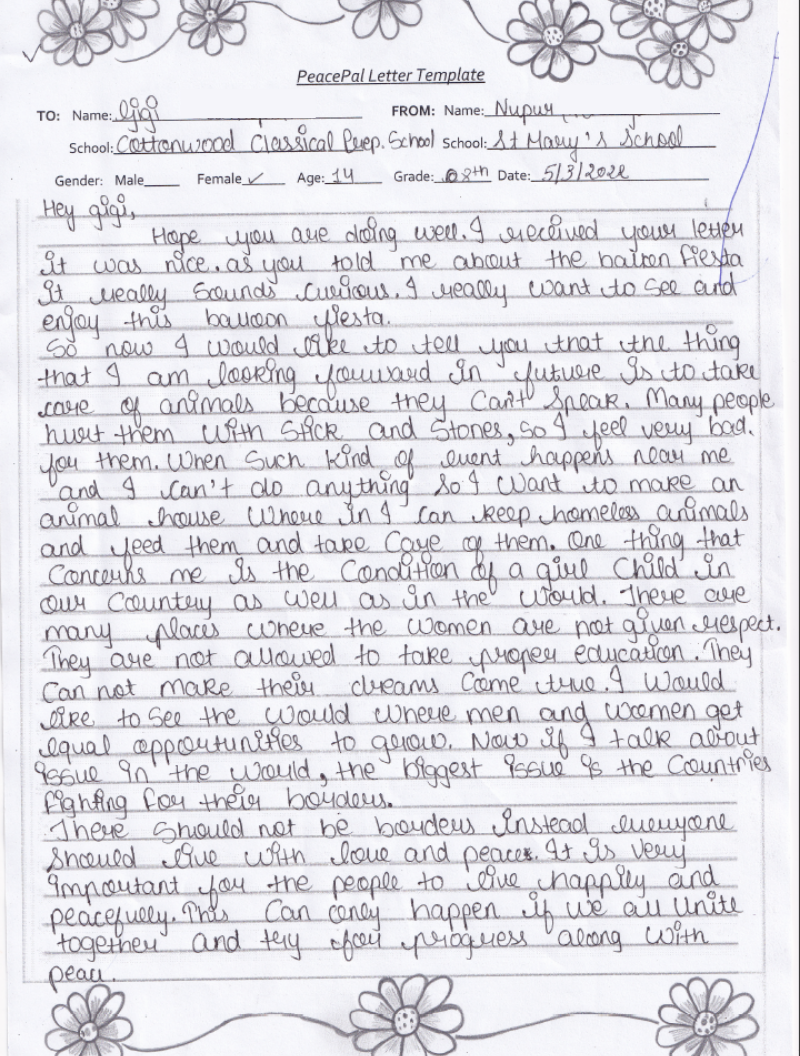 PeacePal Letter Template
TO: Name: Gigi FROM: Name: Nupur
School: Cottonwood Classical Prep. School School: St Mary's School
Gender: Male Female ✓ Age: 14 Grade: 08th Date: 5/3/2022
Hey gigi,
Hope you are doing well. I received your letter
it was nice. as you told me about the balloon fiesta
it really sounds curious. I really want to see and
enjoy this balloon fiesta.
So now I would like to tell you that the thing
that I am looking forward in future is to take
care of animals because they can't speak. Many people
hurt them with stick and stones, so I feel very bad.
for them. When such kind of event happens near me
and I can't do anything so I want to make an
animal house where in I can keep homeless animals
and feed them and take care of them. One thing that
concerns me is the condition of a girl child in
our country as well as in the world. There are
many places where the women are not given respect.
They are not allowed to take proper education. They
can not make their dreams come true. I would
like to see the would where men and women get
equal opportunities to grow. Now if I talk about
issue in the would, the biggest issue is the countries
fighting for their borders.
There should not be borders instead everyone
should live with love and peace. It is very
important for the people to live happily and
peacefully. This can only happen if we all unite
together and try for progress along with
peace.